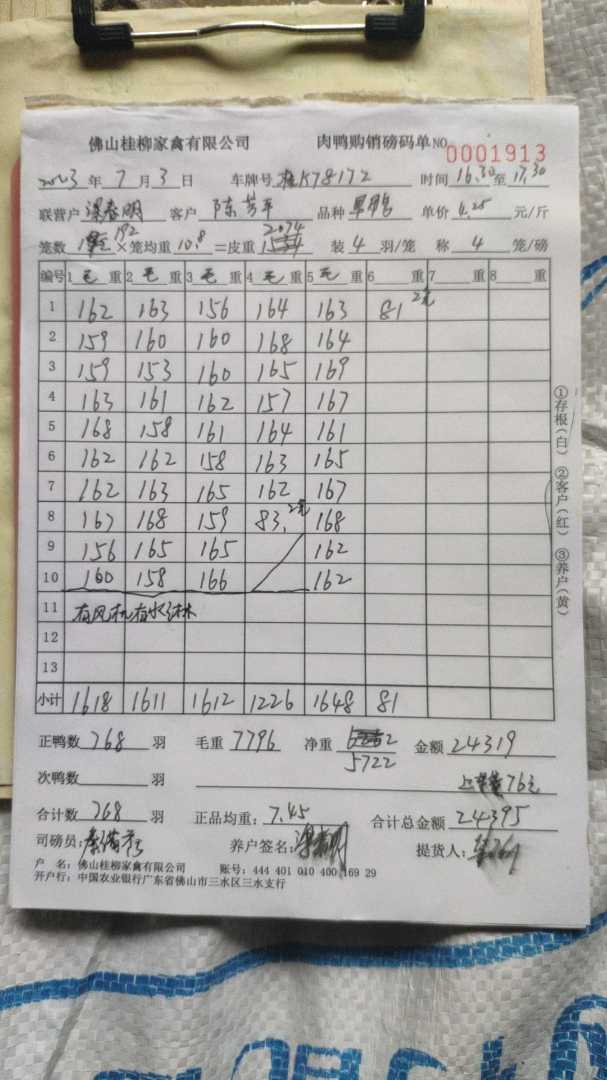 佛山桂柳家禽有限公司 肉鸭购销磅码单 NO 0001913
2023 年 7 月 3 日 车牌号 桂K78172 时间 16.30 至 17.30
联营户 明 客户 陈芳平 品种 单价 4.25 元/斤
笼数 192 ×笼均重 10.8 =皮重 2074 装 4 羽/笼 称 4 笼/磅
编号 1 毛 重 2 毛 重 3 毛 重 4 毛 重 5 毛 重 6 重 7 重 8 重
1 162 163 156 164 163 81 2笼
2 159 160 160 168 164
3 159 153 160 165 169
4 163 161 162 157 167
5 168 158 161 164 161
6 162 162 158 163 165
7 162 163 165 162 167
8 167 168 159 83. 2笼 168
9 156 165 165 162
10 160 158 166 162
11 有风机有水淋
12
13
小计 1618 1611 1612 1226 1648 81
正鸭数 768 羽 毛重 7796 净重 5722 金额 24319
次鸭数 羽 上车费76元
合计数 768 羽 正品均重: 7.45 合计总金额 24395
司磅员: 养户签名: 提货人:
户 名: 佛山桂柳家禽有限公司 账号: 444 401 010 400 169 29
开户行: 中国农业银行广东省佛山市三水区三水支行
①存根(白) ②客户(红) ③养户(黄)